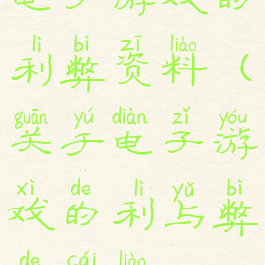 电子游戏的
lì bì zī liào
利弊资料（
guān yú diàn zǐ yóu
关于电子游
xì de lì yǔ bì
戏的利与弊
de cái liào